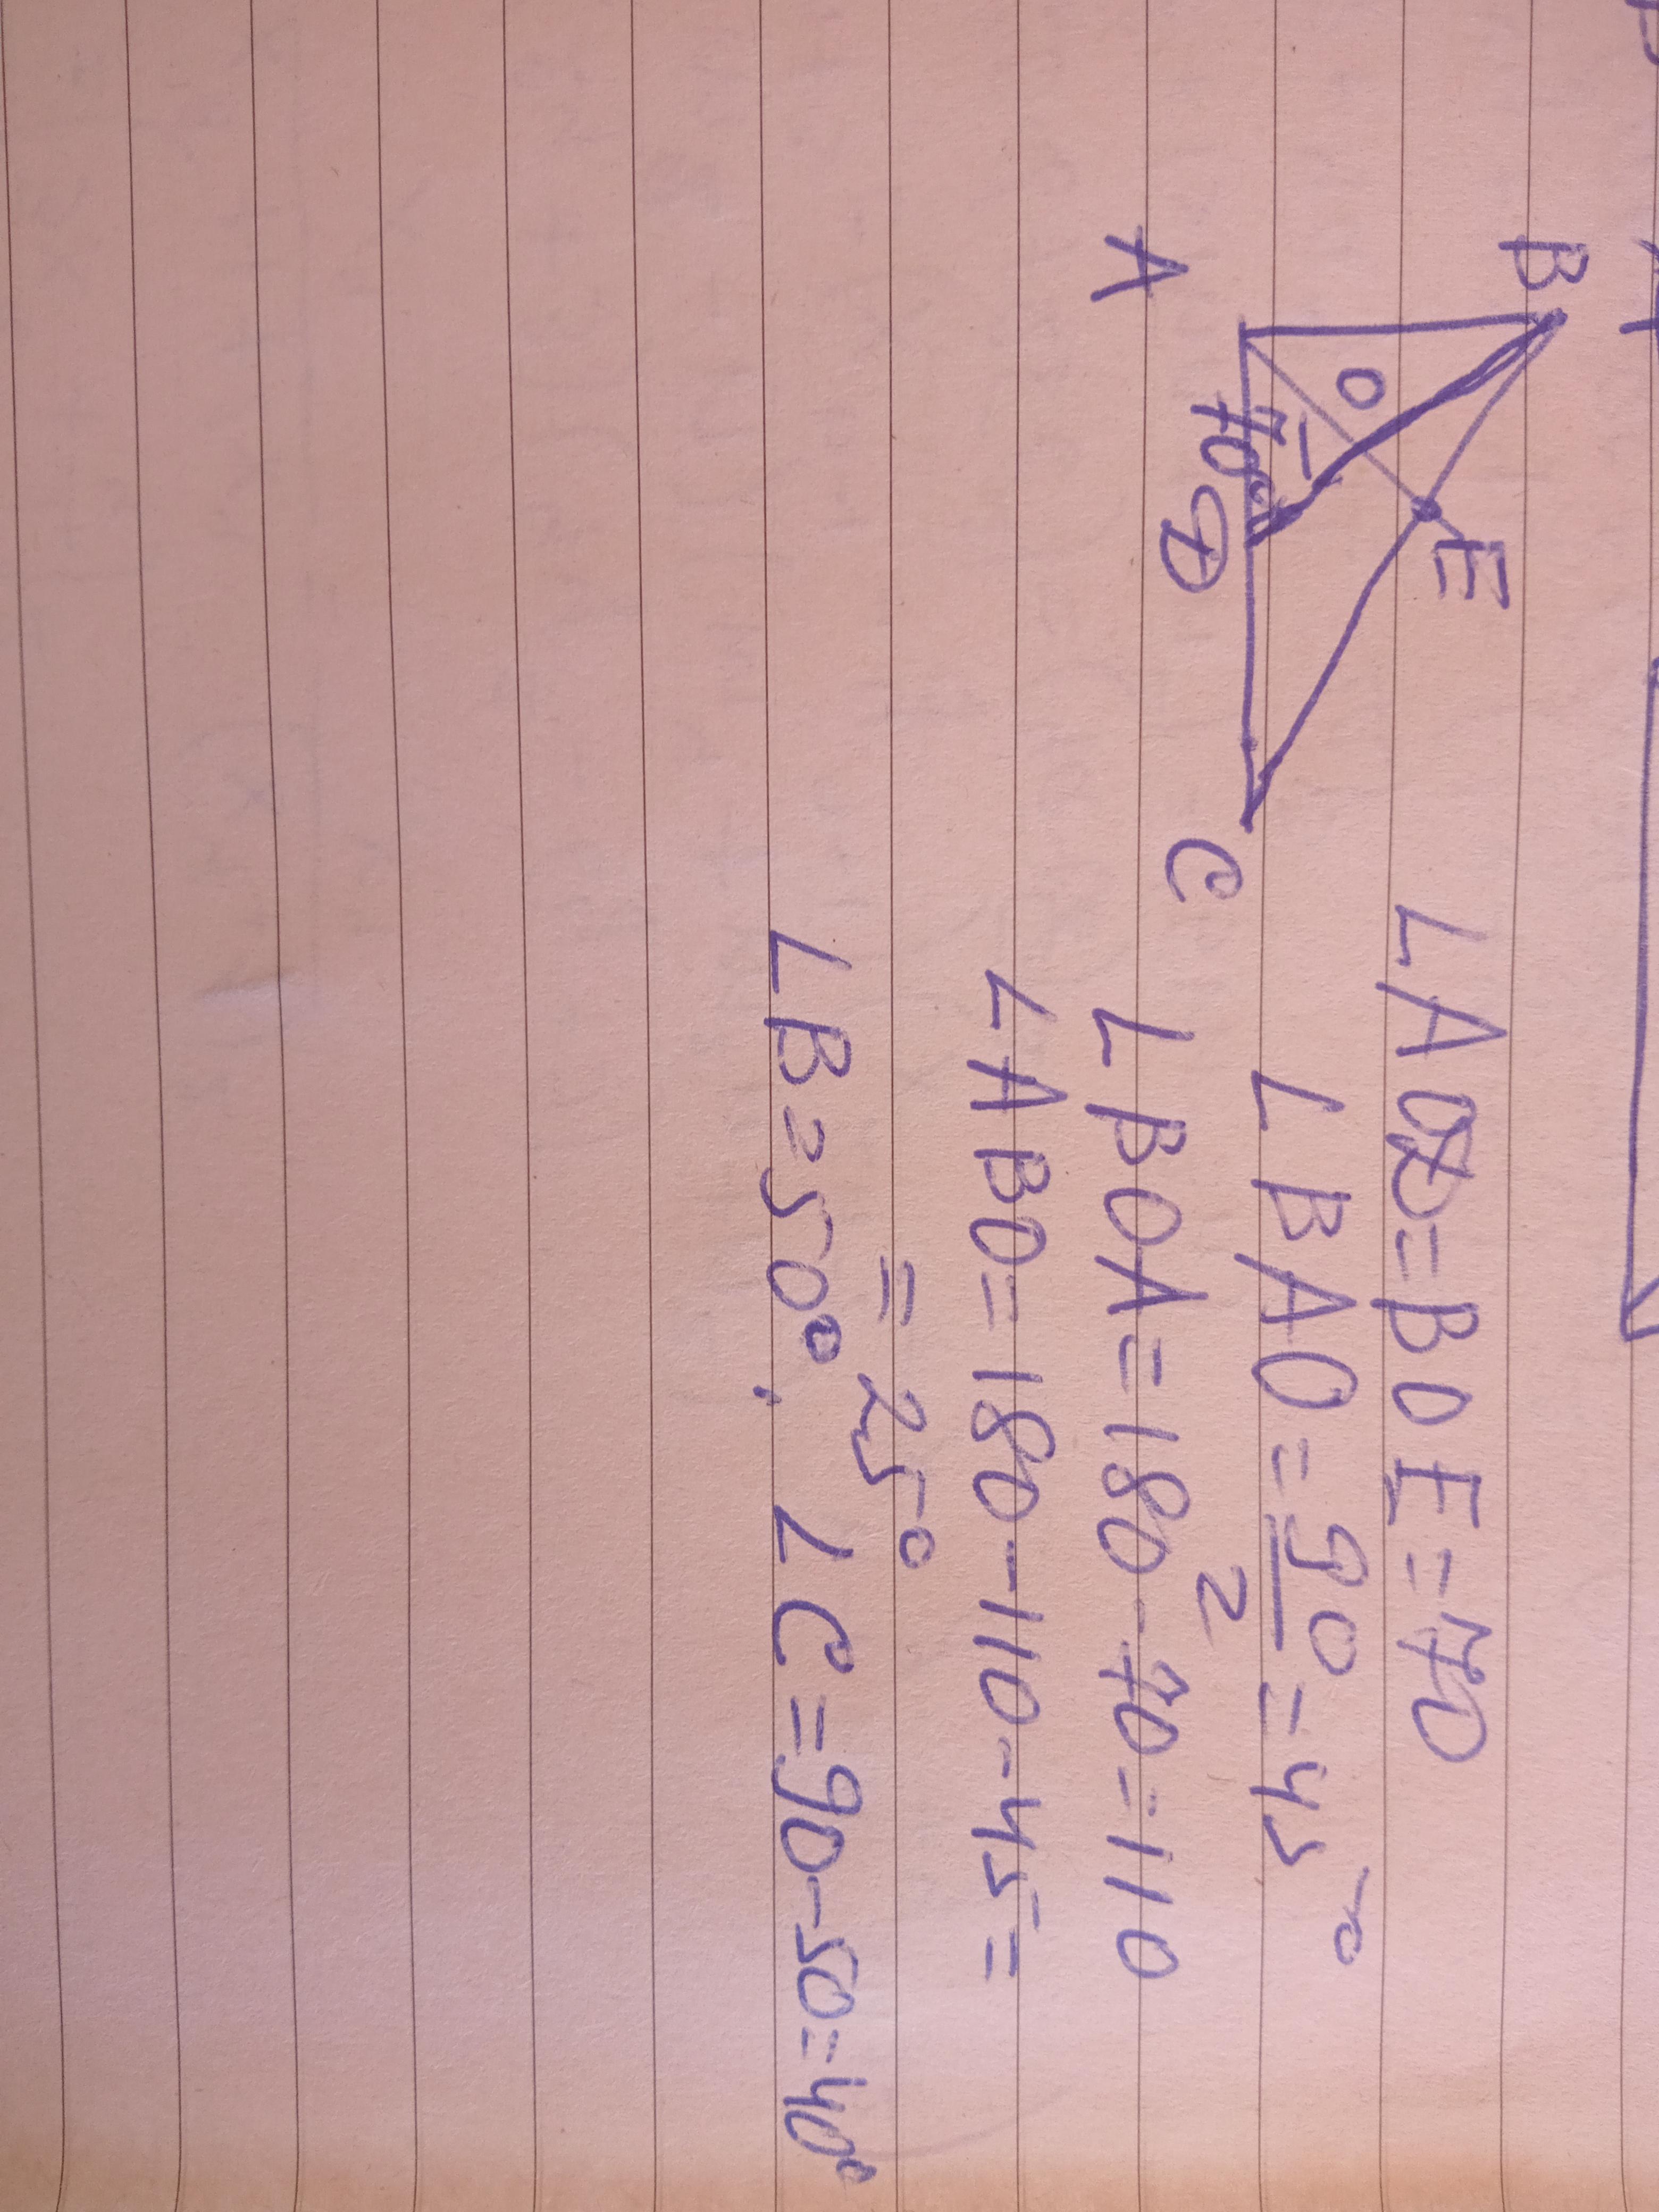 B
E
O
70°
A
D
C
∠AOD=BOE=70
∠BAO=90/2=45°
∠BOA=180-70=110
∠ABO=180-110-45=
=25°
∠B=50°. ∠C=90-50=40°